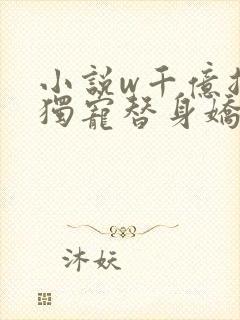 小說w千億
獨寵替身嬌
沐妖